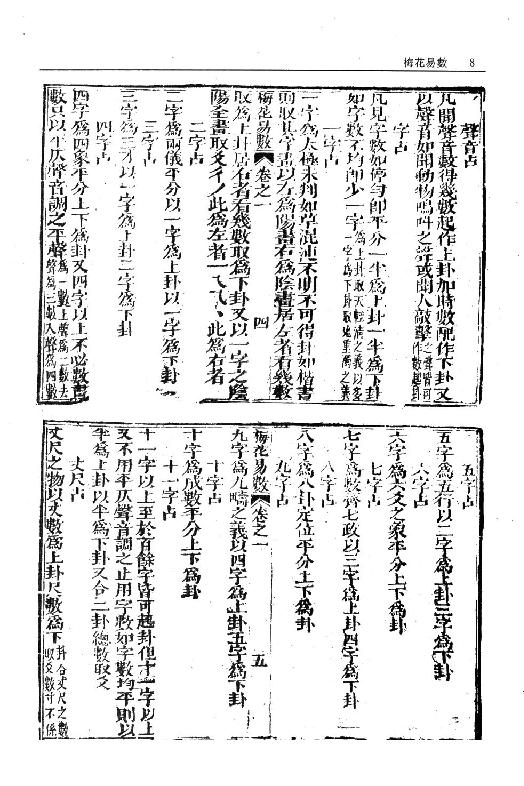 梅花易數 8
聲音占
凡聞聲音數得幾數起作上卦加時數配作下卦又
以聲音如聞動物鳴叫之聲或聞人敲擊之聲皆可作數起卦
字占
凡見字數如停勻即平分一半為上卦一半為下卦
如字數不均即少一字為上卦取天輕清之義以多一字為下卦取地重濁之義
一字占
一字為太極未判如草混沌不明不可得卦如楷書
則取其字畫以左為陽畫右為陰畫居左者看幾數
梅花易數 卷之一 四
取為上卦居右者看幾數取為下卦又以一字之陰
陽全畫取爻彳丿此為左者一乀乙丶此為右者
二字占
二字為兩儀平分以一字為上卦以一字為下卦
三字占
三字為三才以一字為上卦二字為下卦
四字占
四字為四象平分上下為卦又四字以上不必數畫
數只以平仄聲音調之平聲為一數上聲為二數去聲為三數入聲為四數
五字占
五字為五行以二字為上卦三字為下卦
六字占
六字為六爻之象平分上下為卦
七字占
七字為數齊七政以三字為上卦四字為下卦
八字占
八字為八卦定位平分上下為卦
九字占
梅花易數 卷之一 五
九字為九疇之義以四字為上卦五字為下卦
十字占
十字為成數平分上下為卦
十一字占
十一字以上至於百餘字皆可起卦但十一字以上
又不用平仄聲音調之止用字數如字數均平則以
半為上卦以半為下卦又合二卦總數取爻
丈尺占
丈尺之物以丈數為上卦尺數為下卦合丈尺之數取爻數寸不係